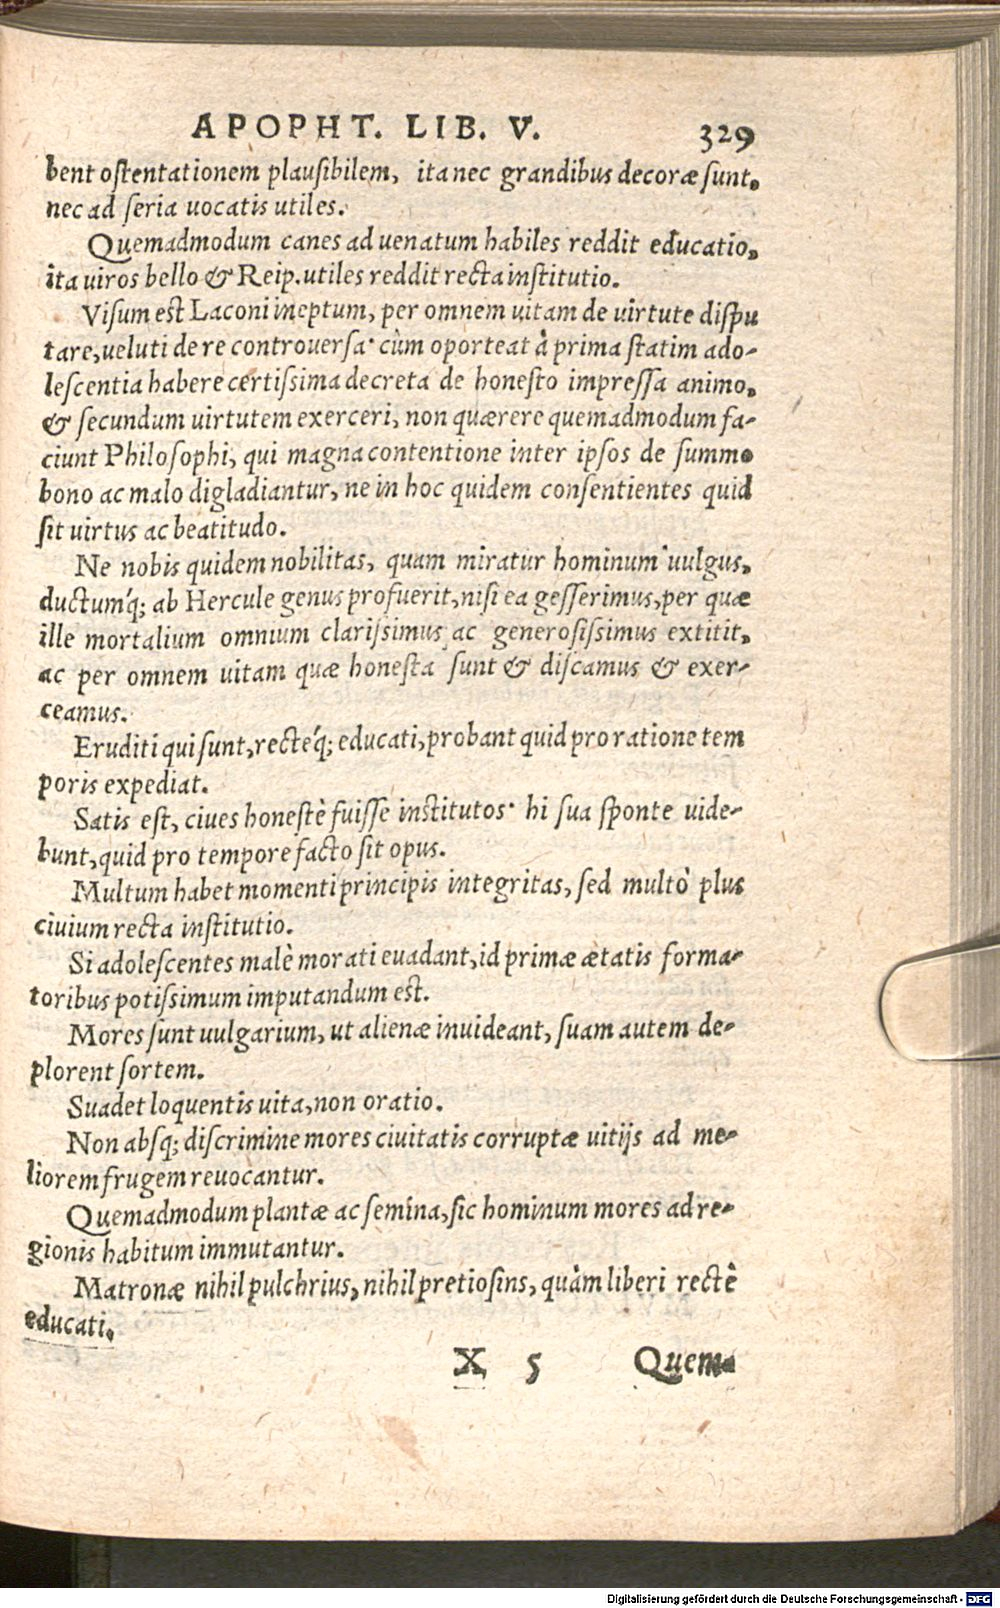 APOPHT. LIB. V. 329
bent ostentationem plausibilem, ita nec grandibus decoræ sunt,
nec ad seria uocatis utiles.
Quemadmodum canes ad uenatum habiles reddit educatio,
ita uiros bello & Reip. utiles reddit recta institutio.
Visum est Laconi ineptum, per omnem uitam de uirtute dispu
tare, ueluti de re controuersa: cùm oporteat à prima statim ado-
lescentia habere certissima decreta de honesto impressa animo,
& secundum uirtutem exerceri, non quærere quemadmodum fa-
ciunt Philosophi, qui magna contentione inter ipsos de summo
bono ac malo digladiantur, ne in hoc quidem consentientes quid
sit uirtus ac beatitudo.
Ne nobis quidem nobilitas, quam miratur hominum uulgus,
ductumq́; ab Hercule genus profuerit, nisi ea gesserimus, per quæ
ille mortalium omnium clarissimus ac generosissimus extitit,
ac per omnem uitam quæ honesta sunt & discamus & exer-
ceamus.
Eruditi qui sunt, recteq́; educati, probant quid pro ratione tem
poris expediat.
Satis est, ciues honestè fuisse institutos: hi sua sponte uide-
bunt, quid pro tempore facto sit opus.
Multum habet momenti principis integritas, sed multò plus
ciuium recta institutio.
Si adolescentes malè morati euadant, id primæ ætatis forma-
toribus potissimum imputandum est.
Mores sunt uulgarium, ut alienæ inuideant, suam autem de-
plorent sortem.
Suadet loquentis uita, non oratio.
Non absq; discrimine mores ciuitatis corruptæ uitijs ad me-
liorem frugem reuocantur.
Quemadmodum plantæ ac semina, sic hominum mores ad re-
gionis habitum immutantur.
Matronæ nihil pulchrius, nihil pretiosins, quàm liberi rectè
educati.
X 5 Quem-
Digitalisierung gefördert durch die Deutsche Forschungsgemeinschaft - DFG